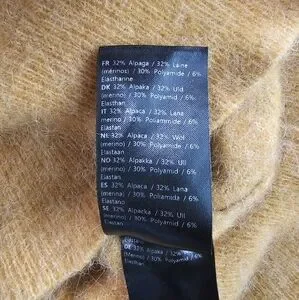 FR 32% Alpaga / 32% Laine
(mérinos) / 30% Polyamide / 6%
Elasthanne
DK 32% Alpaka / 32% Uld
(merino) / 30% Polyamid / 6%
Elastan
IT 32% Alpaca / 32% Lana
merino / 30% Poliammide / 6%
Elastan
NE 32% Alpaca / 32% Wol
(merino) / 30% Polyamide / 6%
Elastaan
NO 32% Alpakka / 32% Ull
(merino) / 30% Polyamid / 6%
Elastan
ES 32% Alpaca / 32% Lana
(merino) / 30% Polyamida / 6%
Elastano
SE 32% Alpacka / 32% Ull
(merino) / 30% Polyamid / 6%
Elasta
DE 32% Alpaka / 32%
(Merino) / 30% Polyamid / 6%
Elasthan